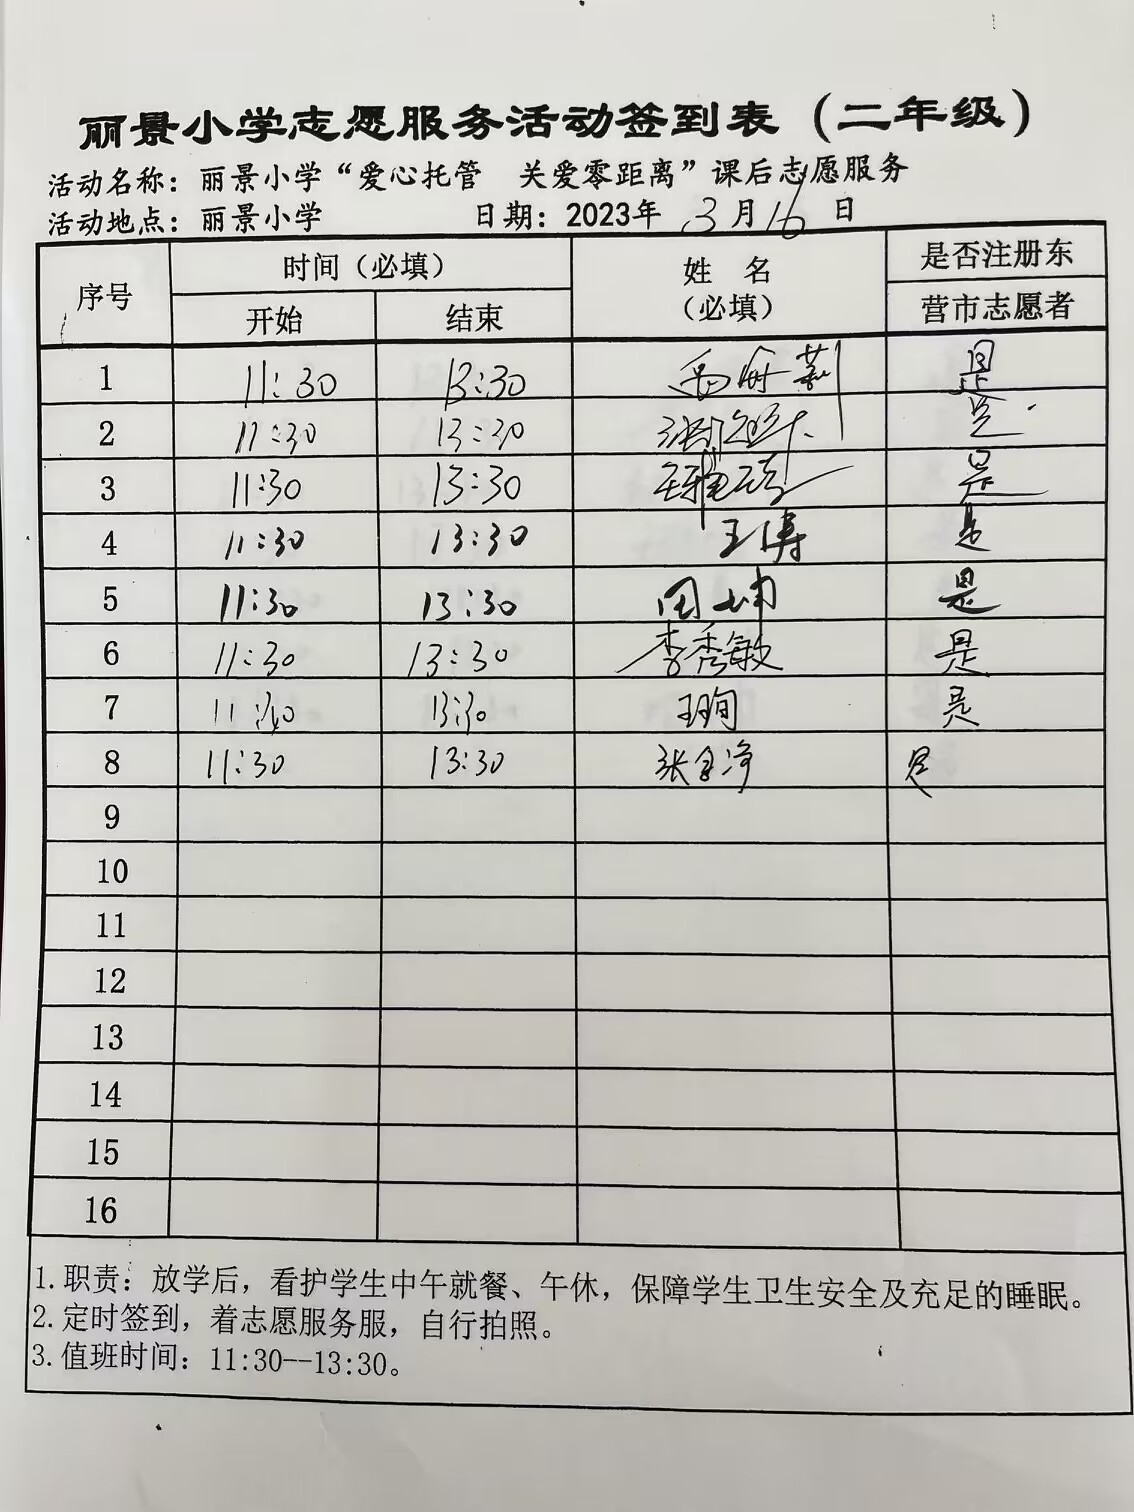 丽景小学志愿服务活动签到表（二年级）
活动名称：丽景小学“爱心托管　关爱零距离”课后志愿服务
活动地点：丽景小学　日期：2023年 3 月 16 日
序号　时间（必填）　姓　名（必填）　是否注册东营市志愿者
开始　结束
1　11:30　13:30　是
2　11:30　13:30　是
3　11:30　13:30　是
4　11:30　13:30　王涛　是
5　11:30　13:30　田坤　是
6　11:30　13:30　李秀敏　是
7　13:30　是
8　11:30　13:30　是
9
10
11
12
13
14
15
16
1.职责：放学后，看护学生中午就餐、午休，保障学生卫生安全及充足的睡眠。
2.定时签到，着志愿服务服，自行拍照。
3.值班时间：11:30--13:30。